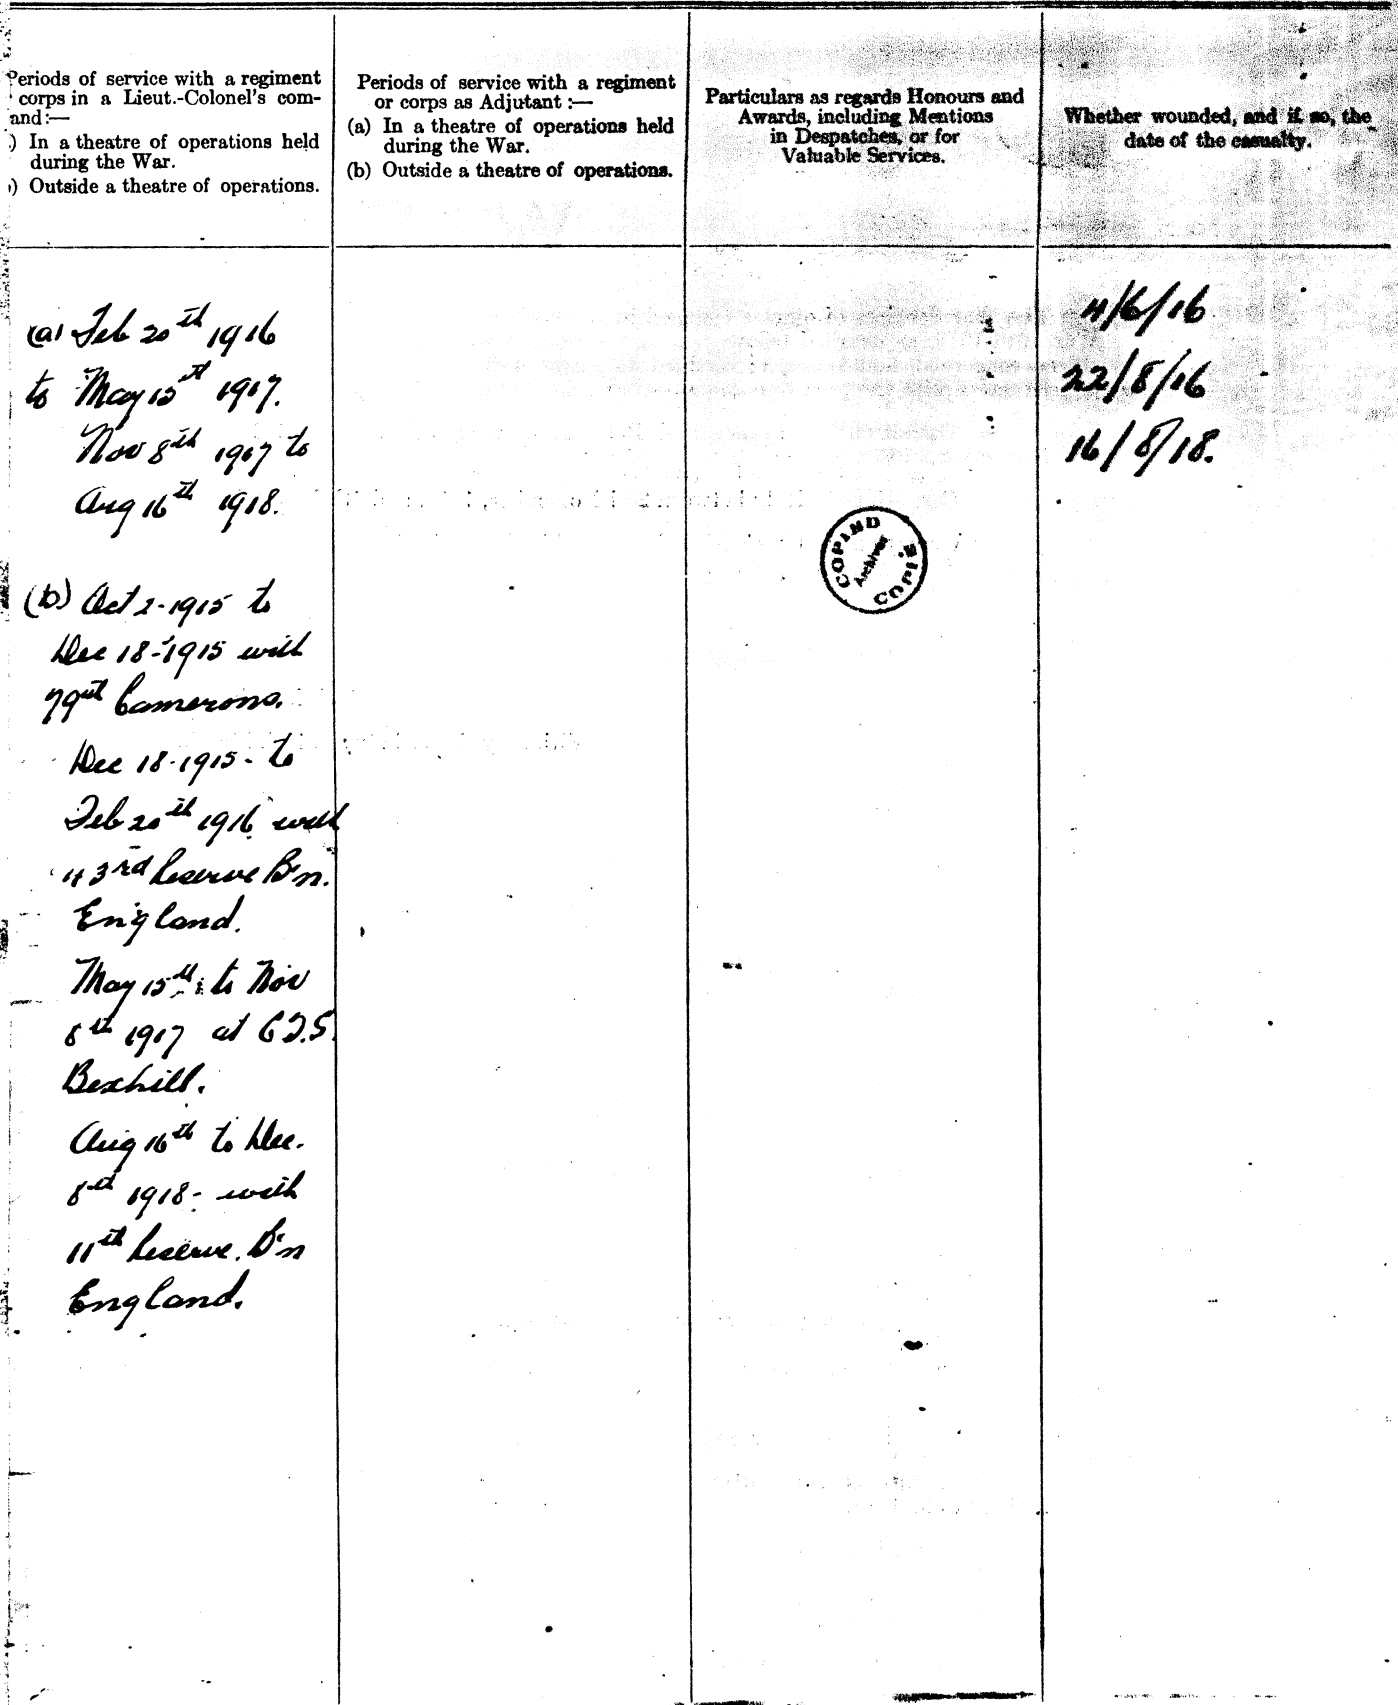 Periods of service with a regiment
corps in a Lieut.-Colonel's com-
and:—
) In a theatre of operations held
during the War.
) Outside a theatre of operations.
Periods of service with a regiment
or corps as Adjutant :—
(a) In a theatre of operations held
during the War.
(b) Outside a theatre of operations.
Particulars as regards Honours and
Awards, including Mentions
in Despatches, or for
Valuable Services.
Whether wounded, and if so, the
date of the casualty.
(a) Feb 20th 1916
to May 15th 1917.
Nov 8th 1917 to
Aug 16th 1918.
(b) Oct 2-1915 to
Dec 18-1915 with
79th Camerons.
Dec 18-1915- to
Feb 20th 1916 with
43rd Reserve B'n.
England.
May 15th to Nov
8th 1917 at C.T.S.
Bexhill.
Aug 16th to Dec.
8th 1918- with
11th Reserve. B'n
England.
4/6/16
22/8/16
16/8/18.
COPIED
Archives
COPIÉ